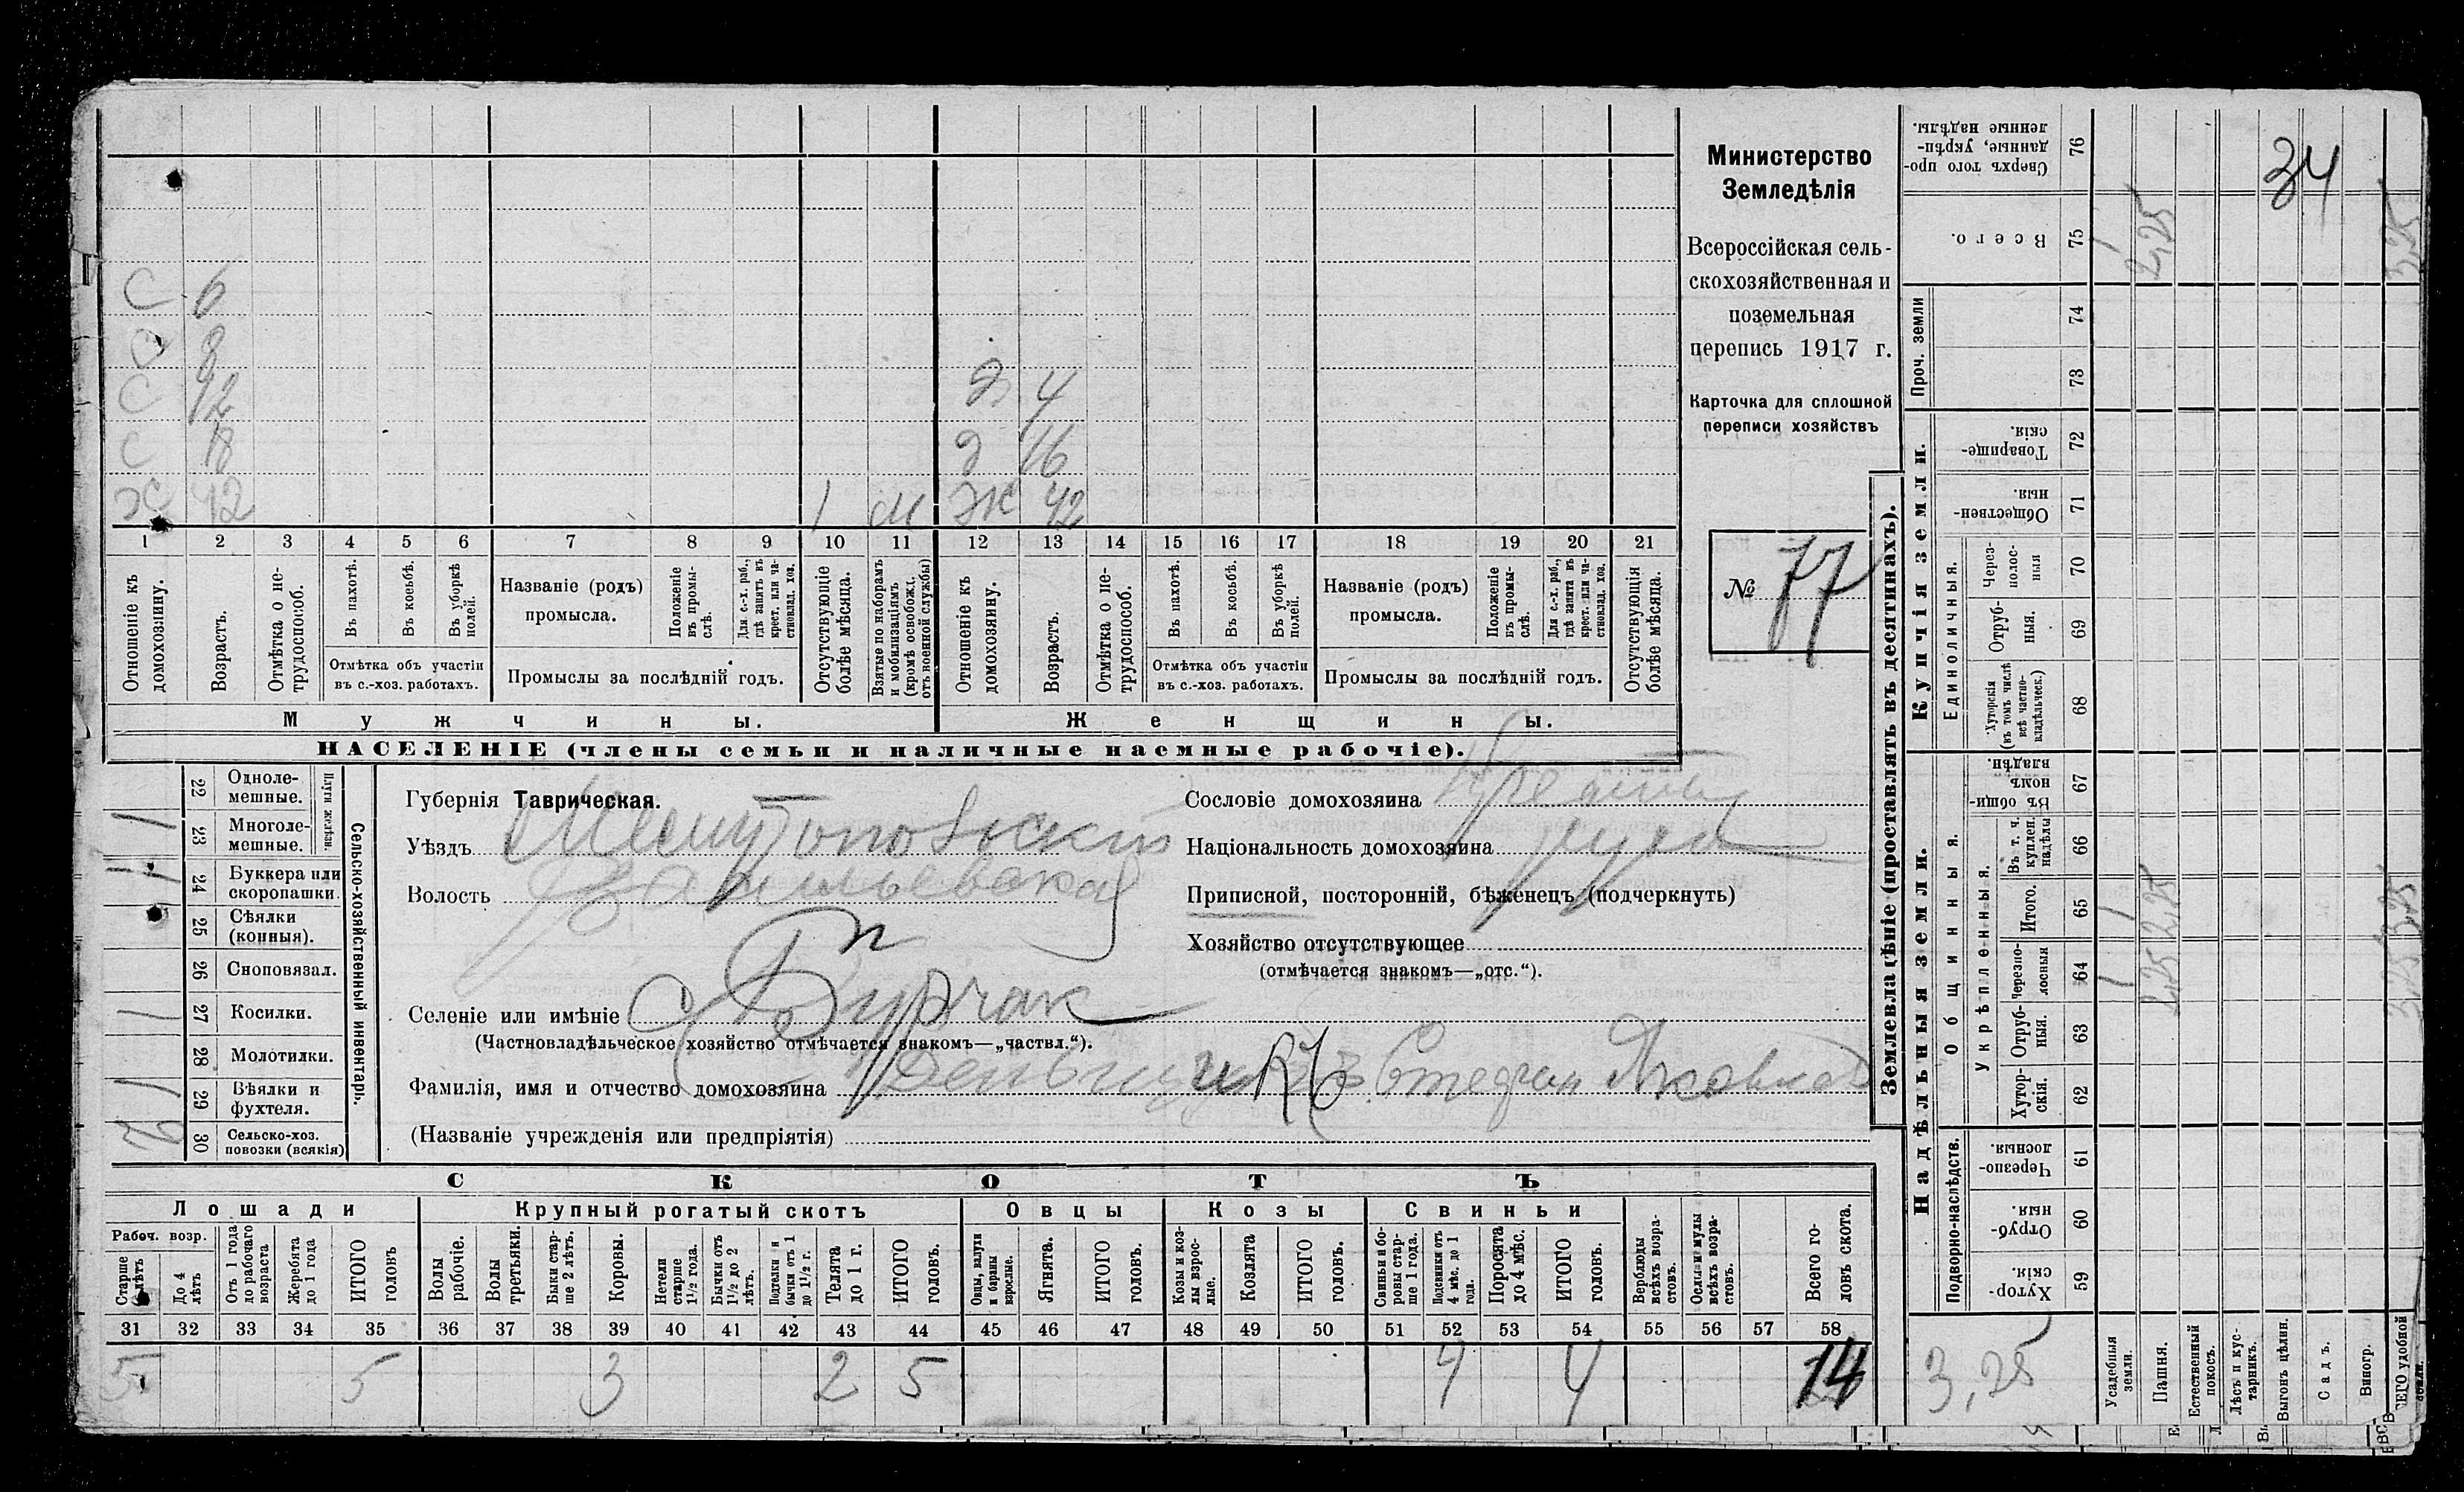 С 6
С 8
С 12 Д 4
С 18 Д 16
Ж 42 1 М Ж 42
1 2 3 4 5 6 7 8 9 10 11 12 13 14 15 16 17 18 19 20 21
Отношеніе къ домохозяину.
Возрастъ.
Отмѣтка о нетрудоспособ.
Въ пахотѣ.
Въ косьбѣ.
Въ уборкѣ полей.
Отмѣтка объ участіи въ с.-хоз. работахъ.
Названіе (родъ) промысла.
Положеніе въ промыслѣ.
Для с.-х. раб., гдѣ занятъ въ крест. или частновлад. хоз.
Промыслы за послѣдній годъ.
Отсутствующіе болѣе мѣсяца.
Взятые по наборамъ и мобилизаціямъ (кромѣ освобожд. отъ военной службы)
Отношеніе къ домохозяину.
Возрастъ.
Отмѣтка о нетрудоспособ.
Въ пахотѣ.
Въ косьбѣ.
Въ уборкѣ полей.
Отмѣтка объ участіи въ с.-хоз. работахъ.
Названіе (родъ) промысла.
Положеніе въ промыслѣ.
Для с.-х. раб., гдѣ занята въ крест. или частновлад. хоз.
Промыслы за послѣдній годъ.
Отсутствующія болѣе мѣсяца.
Мужчины.
Женщины.
НАСЕЛЕНІЕ (члены семьи и наличные наемные рабочіе).
Министерство
Земледѣлія
Всероссійская сель-
скохозяйственная и
поземельная
перепись 1917 г.
Карточка для сплошной
переписи хозяйствъ
№ 77
Сельско-хозяйственный инвентарь.
Плуги желѣзн.
22 Одноле-
мешные.
1 23 Многоле-
мешные.
1 24 Буккера или
скоропашки.
25 Сѣялки
(конныя).
26 Сноповязал.
1 27 Косилки.
28 Молотилки.
1 29 Вѣялки и
фухтеля.
30 Сельско-хоз.
повозки (всякія)
Губернія Таврическая.
Уѣздъ Мелитопольскій
Волость Васильевская
Селеніе или имѣніе С Бурчак
(Частновладѣльческое хозяйство отмѣчается знакомъ—„частвл.“).
Фамилія, имя и отчество домохозяина Степан Яковлев
(Названіе учрежденія или предпріятія)
Сословіе домохозяина
Національность домохозяина
Приписной, посторонній, бѣженецъ (подчеркнуть)
Хозяйство отсутствующее
(отмѣчается знакомъ—„отс.“).
СКОТЪ
Лошади
Крупный рогатый скотъ
Овцы
Козы
Свиньи
Рабоч. возр.
Старше 4 лѣтъ
До 4 лѣтъ
Отъ 1 года до рабочаго возраста
Жеребята до 1 года
ИТОГО головъ
Волы рабочіе.
Волы третьяки.
Быки старше 2 лѣтъ.
Коровы.
Нетели старше 1½ года.
Бычки отъ 1½ до 2 лѣтъ.
Подтелки и бычки отъ 1 до 1½ г.
Телята до 1 г.
ИТОГО головъ.
Овцы, валухи и бараны взрослые.
Ягнята.
ИТОГО головъ.
Козы и козлы взрослые.
Козлята
ИТОГО головъ.
Свиньи и боровы старше 1 года.
Подсвинки отъ 4 мѣс. до 1 года.
Поросята до 4 мѣс.
ИТОГО головъ.
Верблюды всѣхъ возрастовъ.
Ослы и мулы всѣхъ возрастовъ.
Всего головъ скота.
31 32 33 34 35 36 37 38 39 40 41 42 43 44 45 46 47 48 49 50 51 52 53 54 55 56 57 58
5 5 3 2 5 4 4 14
Землевладѣніе (проставлять въ десятинахъ).
Надѣльныя земли.
Купчія земли.
Проч. земли
Подворно-наслѣдств.
Общинныя.
Укрѣпленныя.
Единоличныя.
Сверхъ того проданные, укрѣпленные надѣлы. 76
34
Всего. 75 1 2,25 3,25
74
73
Товарищескія. 72
Общественныя. 71
Черезполосныя 70
Отрубныя. 69
Хуторскія (въ томъ числѣ всѣ частновладѣльческ.) 68
Въ общиномъ владѣн. 67
Въ т. ч. куплен. надѣлы 66
Итого. 65 1 2,25 3,25
Черезполосныя 64 1 2,25 3,25
Отрубныя. 63
Хуторскія. 62
Черезполосныя. 61
Отрубныя. 60
Хуторскія. 59
3,25
Усадебныя земли.
Пашня.
Естественный покосъ.
Лѣсъ и кустарникъ.
Выгонъ цѣлин.
Садъ.
Виногр.